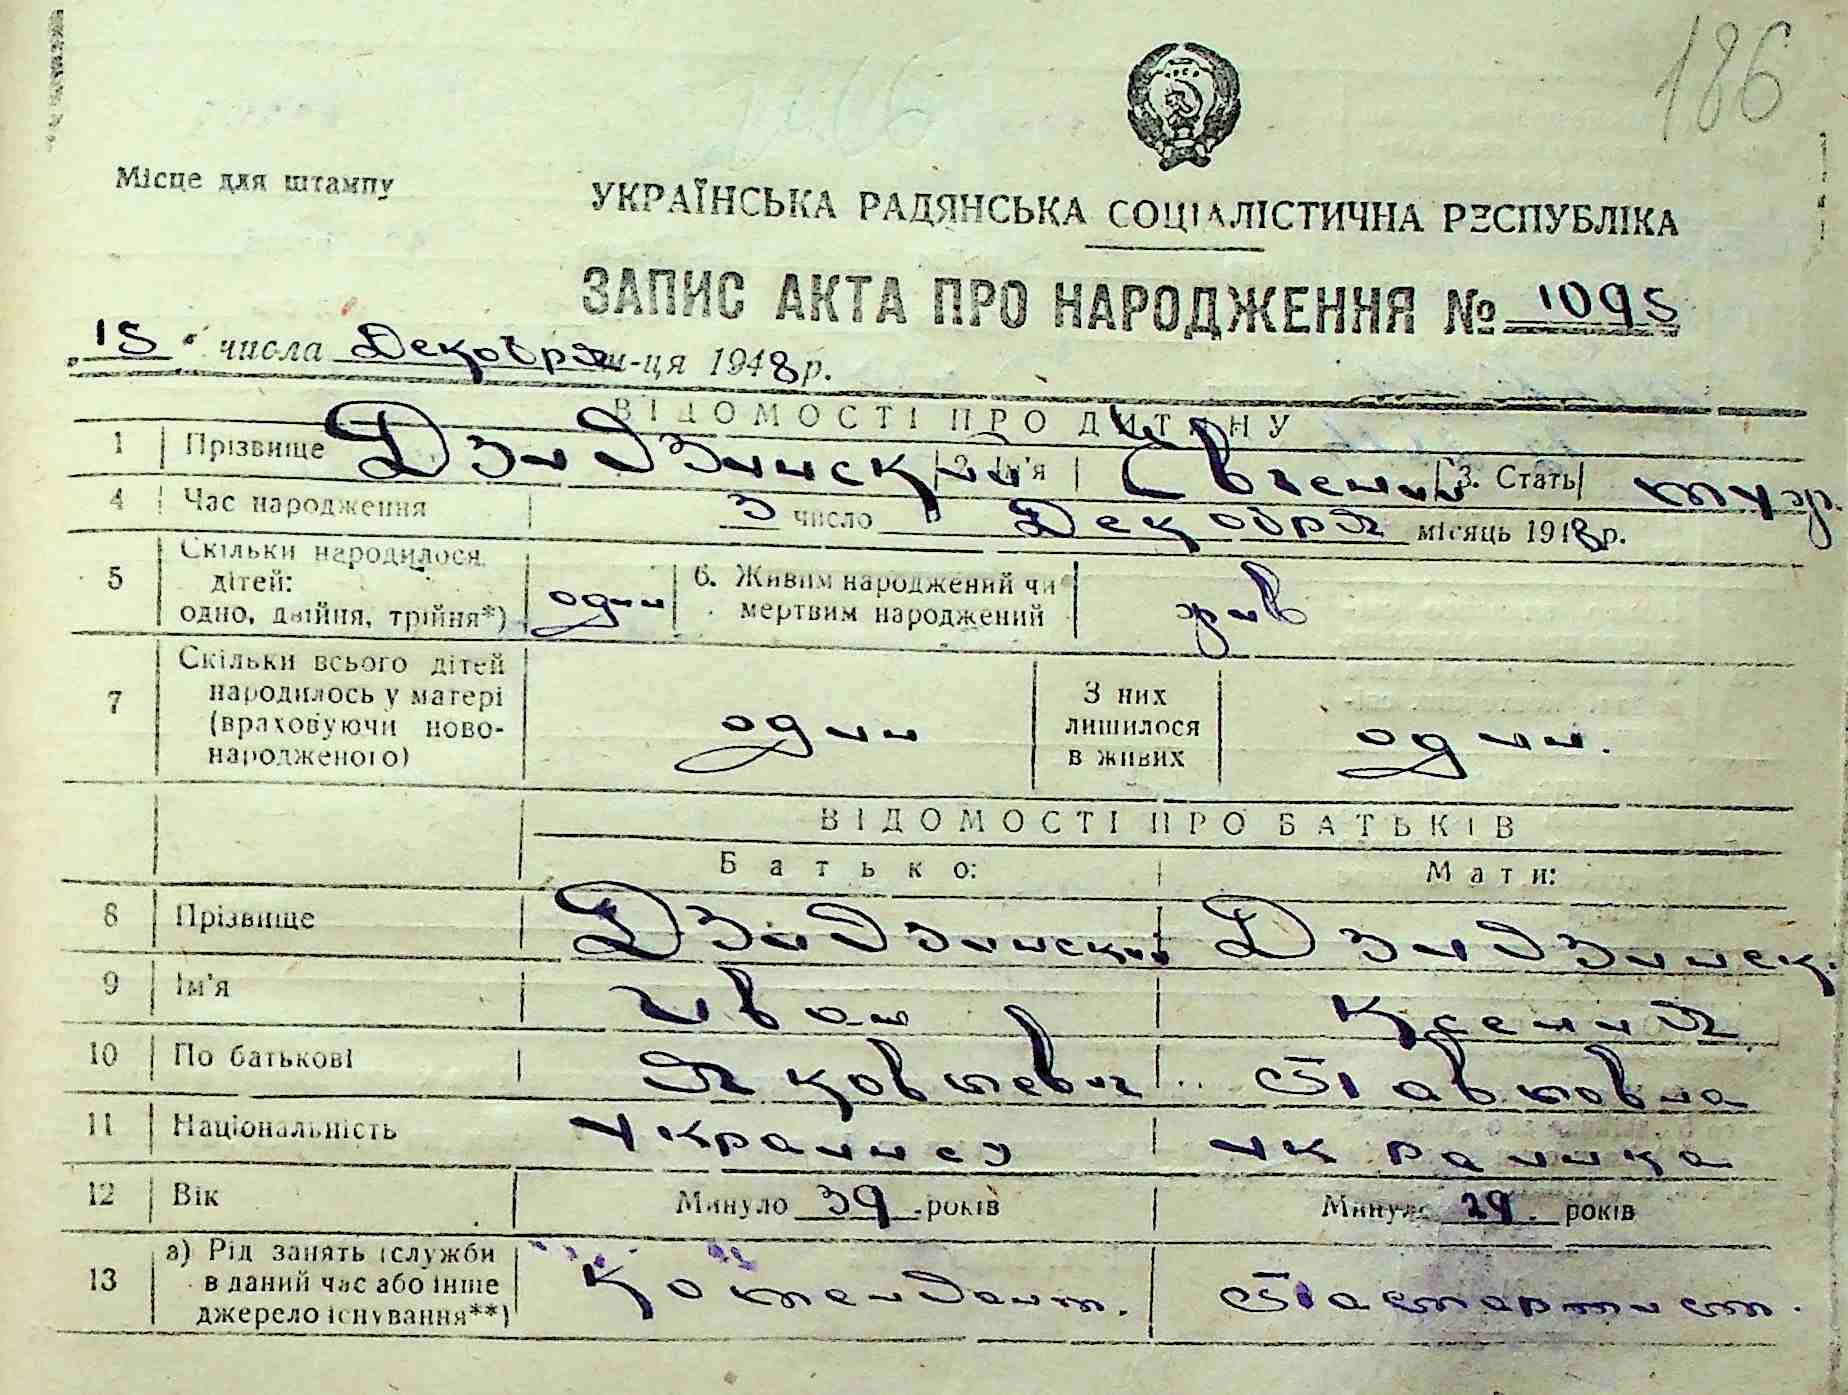 186
Місце для штампу
УКРАЇНСЬКА РАДЯНСЬКА СОЦІАЛІСТИЧНА РЕСПУБЛІКА
ЗАПИС АКТА ПРО НАРОДЖЕННЯ № 1095
„15“ числа Декабря м-ця 1948 р.
ВІДОМОСТІ ПРО ДИТИНУ
1 Прізвище Дзидзинский 2. Ім'я Евгений 3. Стать муж.
4 Час народження 3 число Декабря місяць 1948 р.
5 Скільки народилося дітей: одно, двійня, трійня*) один 6. Живим народжений чи мертвим народжений жив
7 Скільки всього дітей народилось у матері (враховуючи новонародженого) один З них лишилося в живих один.
ВІДОМОСТІ ПРО БАТЬКІВ
Батько: Мати:
8 Прізвище Дзидзинский Дзидзинск.
9 Ім'я Иван Ксения
10 По батькові Яковлевич Павловна
11 Національність Украинец Украинка
12 Вік Минуло 39 років Минуло 29. років
13 а) Рід занять (служби в даний час або інше джерело існування**) Комендант.